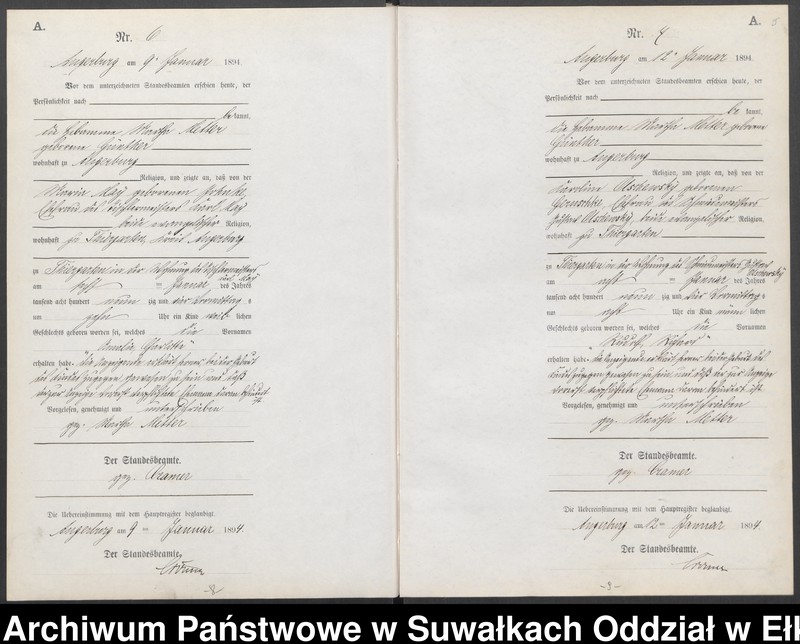 A.
Nr. 6
Angerburg am 9ten Januar 1894.
Vor dem unterzeichneten Standesbeamten erschien heute, der
Persönlichkeit nach
be kannt,
die Hebamme Martha Metter
geborene Günther
wohnhaft zu Angerburg
Religion, und zeigte an, daß von der
Maria May geborenen
Ehefrau des Tischlermeisters Karl May
beide evangelischer Religion,
wohnhaft zu Thiergarten, Kreis Angerburg
zu Thiergarten in der Wohnung des Tischlermeisters
Karl May
am Januar des Jahres
tausend acht hundert neun zig und vier Vormittag s
um zehn Uhr ein Kind weib lichen
Geschlechts geboren worden sei, welches die Vornamen
Amalie Charlotte
erhalten habe. die Anzeigende erklärt ferner bei der Geburt
des Kindes zugegen gewesen zu sein und daß
der zur Anzeige verpflichtete Ehemann daran behindert
ist.
Vorgelesen, genehmigt und unterschrieben
gez. Martha Metter
Der Standesbeamte.
gez. Cramer
Die Uebereinstimmung mit dem Hauptregister beglaubigt.
Angerburg am 9ten Januar 1894.
Der Standesbeamte.
Cramer
A. 5
Nr. 7
Angerburg am 12ten Januar 1894
Vor dem unterzeichneten Standesbeamten erschien heute, der
Persönlichkeit nach
be kannt,
die Hebamme Martha Metter geborene
Günther
wohnhaft zu Angerburg
Religion, und zeigte an, daß von der
Karoline Olschewsky geborenen
Ehefrau des
Olschewsky, beide evangelischer Religion,
wohnhaft zu Thiergarten
zu Thiergarten in der Wohnung des
Olschewsky
am Januar des Jahres
tausend acht hundert neun zig und vier Vormittag s
um acht Uhr ein Kind männ lichen
Geschlechts geboren worden sei, welches die Vornamen
„Rudolf, Richard“
erhalten habe. die Anzeigende erklärt ferner bei der Geburt des
Kindes zugegen gewesen zu sein und daß der zur Anzeige
verpflichtete Ehemann daran behindert ist.
Vorgelesen, genehmigt und unterschrieben
gez. Martha Metter
Der Standesbeamte.
gez. Cramer
Die Uebereinstimmung mit dem Hauptregister beglaubigt.
Angerburg am 12ten Januar 1894.
Der Standesbeamte.
Cramer
Archiwum Państwowe w Suwałkach Oddział w Ełk